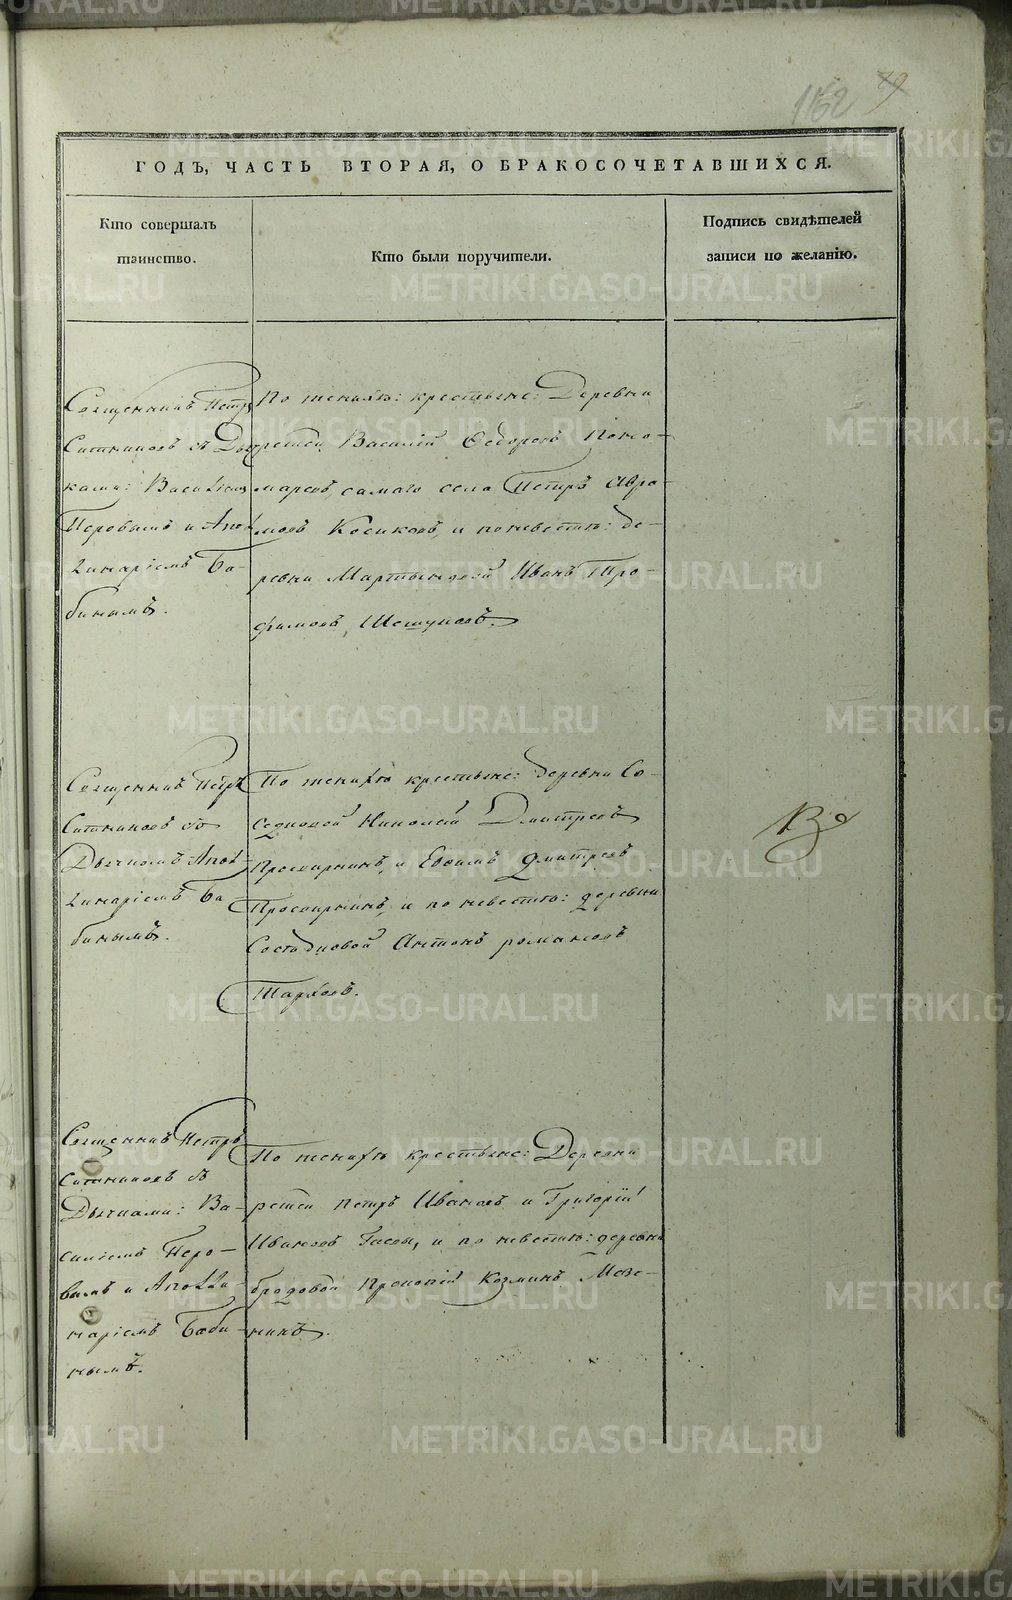 1162 79
ГОДЪ, ЧАСТЬ ВТОРАЯ, О БРАКОСОЧЕТАВШИХСЯ.
Кто совершалъ
таинство.
Кто были поручители.
Подпись свидѣтелей
записи по желанію.
Священникъ Петръ
Ситниковъ съ
ками: Василіемъ
Перовымъ и Апол
линаріемъ Ба-
бинымъ.
По женихѣ: крестьяне: Деревни
Василій Ѳедоровъ Поно-
маревъ, самаго села Петръ Авра-
мовъ Косиковъ, и по невѣстѣ: де-
ревни Мартыновой Иванъ Тро-
фимовъ, Шешуковъ.
Священникъ Петръ
Ситниковъ съ
Дьячкомъ Апол-
линаріемъ Ба
бинымъ.
По женихѣ крестьяне: деревни Со-
Николай Дмитреевъ
Просвирнинъ, и Евѳимъ Дмитреевъ
Просвирнинъ, и по невѣстѣ: деревни
Антонъ романовъ
Тарховъ.
Священникъ Петръ
Ситниковъ съ
Дьячками: Ва-
силіемъ Перо-
вымъ и Аполли-
наріемъ Баби-
нымъ.
По женихѣ крестьяне: Деревни
Петръ Ивановъ и Григорій
Ивановъ и по невѣстѣ: деревни
бродовой Прокопій Козминъ Мезе-
нинъ.
METRIKI.GASO-URAL.RU